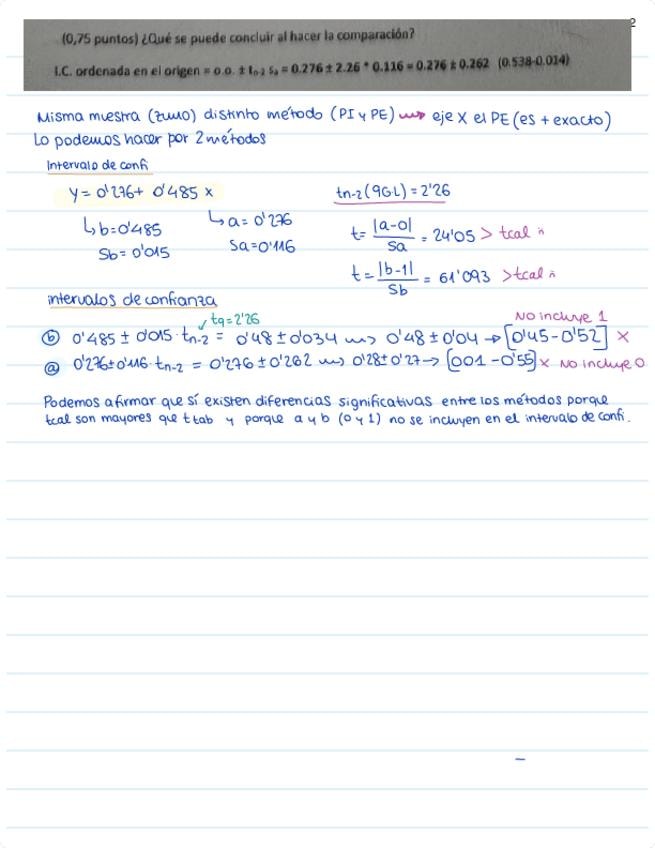 2
(0,75 puntos) ¿Qué se puede concluir al hacer la comparación?
I.C. ordenada en el origen = o.o. ± tn-2 sa = 0.276 ± 2.26 * 0.116 = 0.276 ± 0.262 (0.538-0.014)
Misma muestra (zumo) distinto método (PI y PE) ⟿ eje X el PE (es + exacto)
Lo podemos hacer por 2 métodos
Intervalo de confi
y = 0'276 + 0'485 x
tn-2 (9G.L) = 2'26
↳ b = 0'485
↳ a = 0'276
Sb = 0'015
Sa = 0'116
t = |a-0| / Sa = 24'05 > tcal
t = |b-1| / Sb = 61'093 > tcal
intervalos de confianza
t9 = 2'26
No incluye 1
ⓑ 0'485 ± 0'015 · tn-2 = 0'48 ± 0'034 ⟿ 0'48 ± 0'04 → [0'45 - 0'52] ×
ⓐ 0'276 ± 0'116 · tn-2 = 0'276 ± 0'262 ⟿ 0'28 ± 0'27 → [001 - 0'55] × No incluye 0
Podemos afirmar que sí existen diferencias significativas entre los métodos porque
tcal son mayores que t tab y porque a y b (0 y 1) no se incluyen en el intervalo de confi.